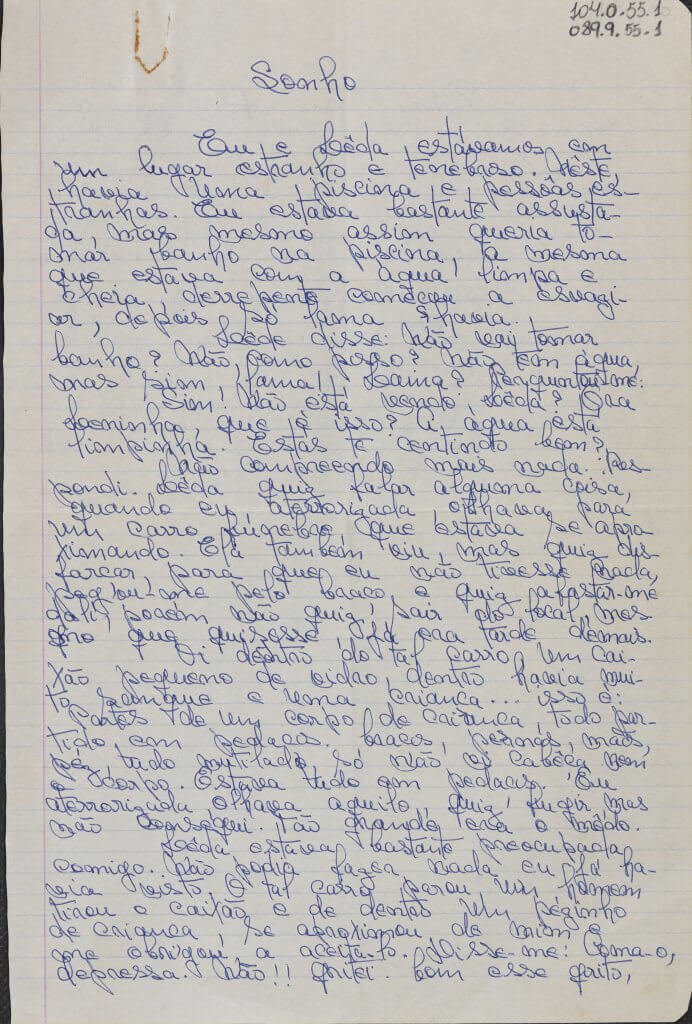 104.0.55.1
089.9.55-1
Sonho
Eu e Loêda estávamos em
um lugar estranho e tenebroso. Nêste,
havia uma piscina e pessôas es-
tranhas. Eu estava bastante assusta-
da, mas mesmo assim queria to-
mar banho na piscina, a mesma
que estava com a água limpa e
cheia, derrepente começou a esvazi-
ar, depois só lama havia.
Loêda disse: Não vai tomar
banho? Não, como posso? Não tem água,
mas sim, lama! Lama? Perguntou-me:
Sim! Não está vendo, Loêda? Ora
que é isso? A água está
limpinha. Estás te centindo bem?
Não compreendo mais nada. Res-
pondi. Loêda quiz falar alguma coisa,
quando eu, aterrorizada, olhava para
um carro fúnebre, que estava se apro
ximando. Ela também viu, mas quiz dis-
farçar, para que eu não tivesse nada,
pegou-me pelo braço e quiz afastar-me
dali, porém não quiz, sair do local, mes-
mo que quisesse, já era tarde demais.
Vi dentro do tal carro um cai-
xão pequeno de vidro, dentro havia mui-
to sangue e uma criança... isso é:
Partes de um corpo de criança, todo par-
tido, em pedaços. braços, pernas, mãos,
pés, tudo mutilado, só não vi cabeça nem
o corpo. Estava tudo em pedaços. Eu
aterrorizada olhava aquilo, quiz fugir, mas
não consegui. Tão grande era o mêdo.
Loêda estava bastante preocupada
comigo. Não podia fazer nada eu já ha-
via visto. O tal carro parou um homem
tirou o caixão e de dentro um pézinho
de criança, se aproximou de mim e
me obrigou a aceita-lo. Disse-me: Coma-o,
depressa. Não!! gritei. bom esse grito,